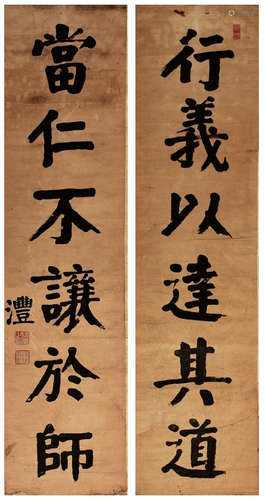 行義以達其道
當仁不讓於師
灃